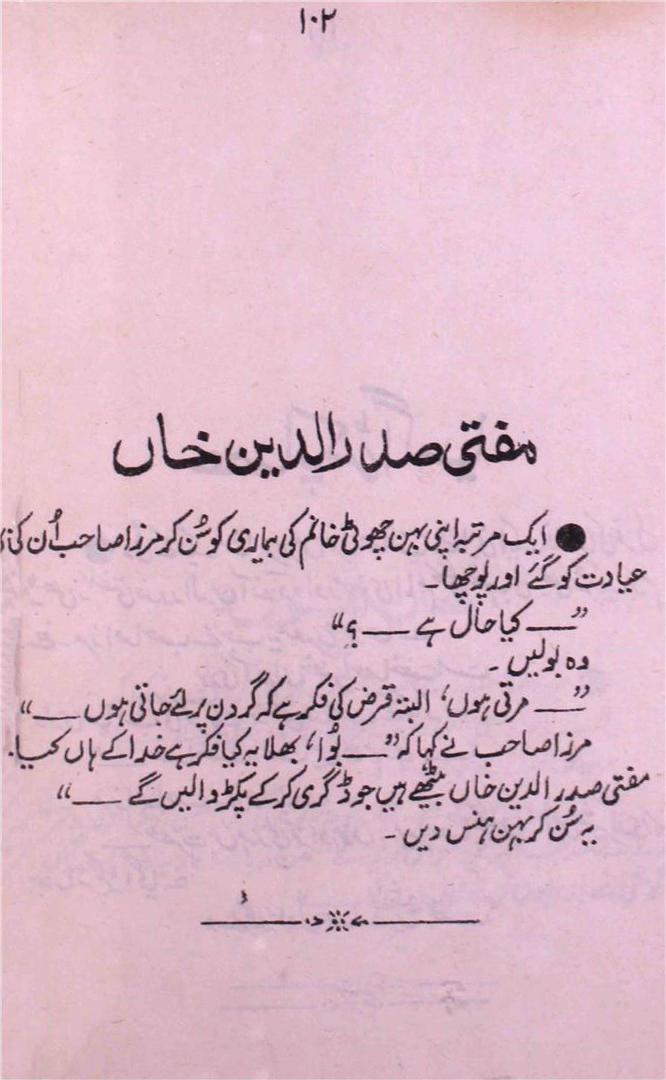 ۱۰۲
مفتی صدرالدین خاں
● ایک مرتبہ اپنی بہن چھوٹی خانم کی بیماری کو سُن کر مرزا صاحب اُن کی
عیادت کو گئے اور پوچھا۔
”—— کیا حال ہے —— ؟“
وہ بولیں ۔
”—— مرتی ہوں، البتہ قرض کی فکر ہے کہ گردن پر لئے جاتی ہوں ——“
مرزا صاحب نے کہا کہ ”—— بُوا، بھلا یہ کیا فکر ہے خدا کے ہاں کیا۔
مفتی صدر الدین خاں بیٹھے ہیں جو ڈگری کر کے پکڑوا لیں گے ——“
یہ سُن کر بہن ہنس دیں ۔